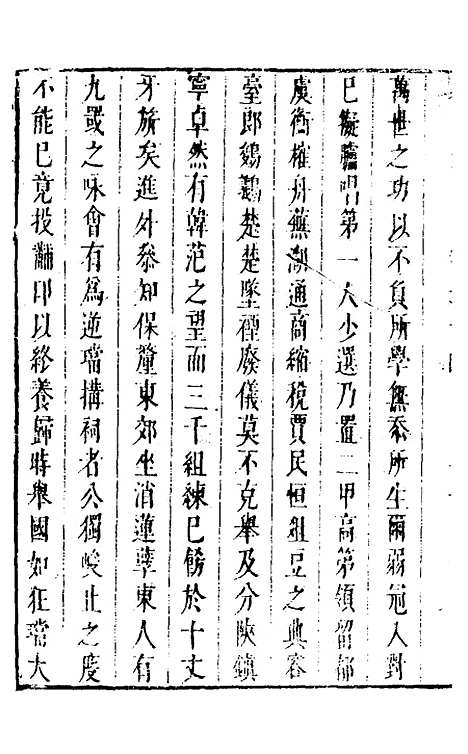 萬世之功以不負所學無忝所生爾弱冠入對
已擬臚唱第一人少選乃置二甲高第領留都
虞衡榷舟蕪湖通商縮稅賈民恒俎豆之典容
臺郎鷄鶩楚楚墜禮廢儀莫不克舉及分陝鎮
寧卓然有韓范之望而三千組練已飭於十丈
牙旂矣進外叅知保釐東郊坐消蓮孽東人有
九罭之咏會有爲逆璫搆祠者公獨峻止之度
不能已竟投劾印以終養歸時舉國如狂璫大